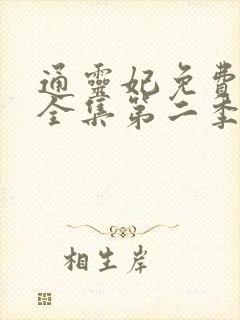 通靈妃免費
全集第二季
相生岸